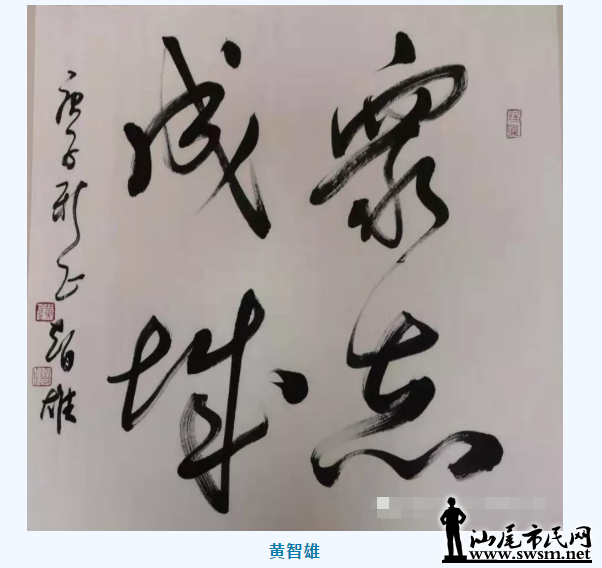 眾志
成城
庚子新正智雄
汕尾市民网
www.swsm.net
黄智雄